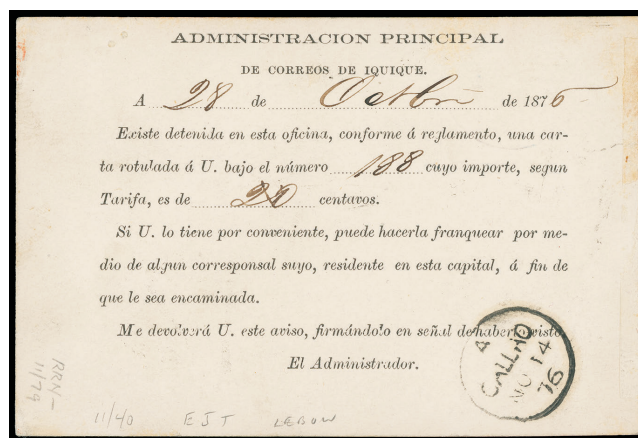 ADMINISTRACION PRINCIPAL
DE CORREOS DE IQUIQUE.
A 28 de Octbre de 1876
Existe detenida en esta oficina, conforme á reglamento, una car-
ta rotulada á U. bajo el número 188 cuyo importe, segun
Tarifa, es de 20 centavos.
Si U. lo tiene por conveniente, puede hacerla franquear por me-
dio de algun corresponsal suyo, residente en esta capital, á fin de
que le sea encaminada.
Me devolverá U. este aviso, firmándolo en señal de haberlo visto.
El Administrador.
A
CALLAO
NO 14
76
RRN-
11/79
11/40 EJT LEBOW